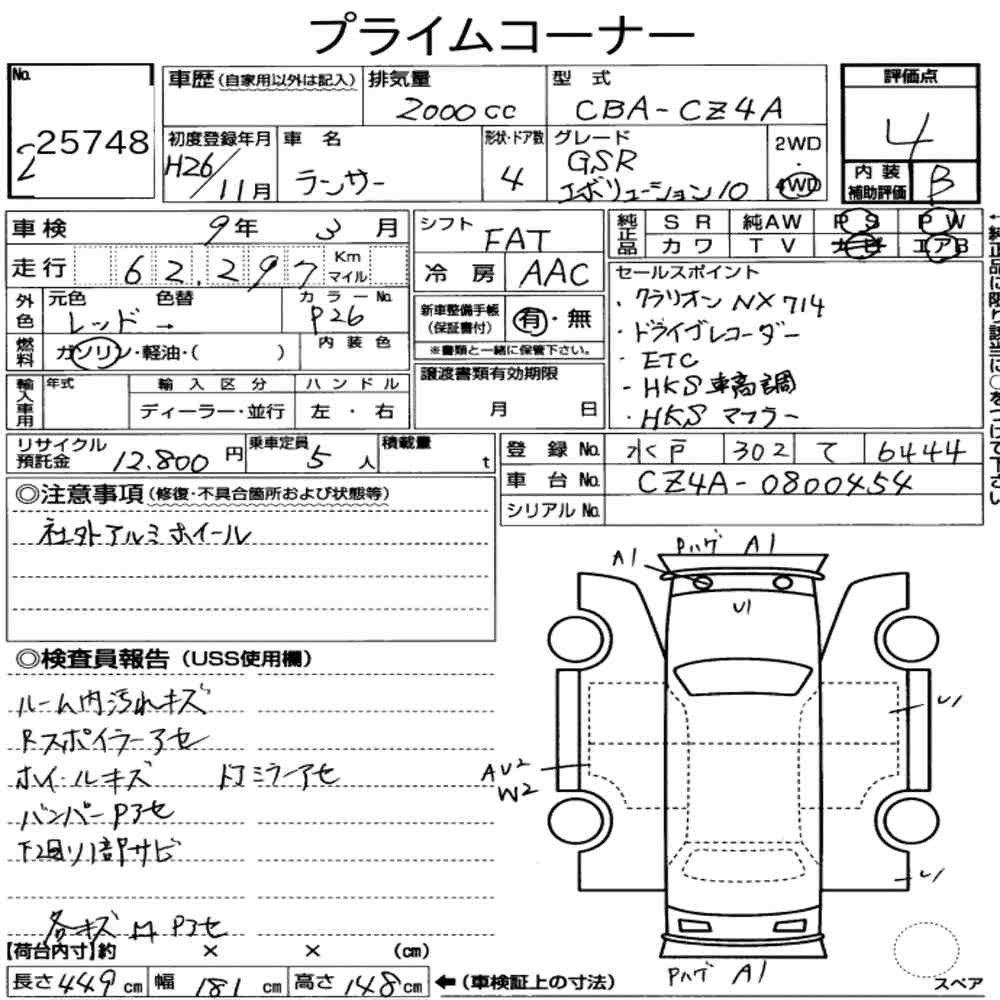 プライムコーナー
No. 25748
車歴(自家用以外は記入) 排気量 2000cc 型式 CBA-CZ4A 評価点 4
初度登録年月 H26/11月 車名 ランサー 形状・ドア数 4 グレード GSR エボリューション10 2WD・4WD 内装補助評価 B
車検 9年 3月 シフト FAT 純正品 SR 純AW PS PW
走行 62,297 Km マイル 冷房 AAC カワ TV ナビ エアB
外色 元色 色替 カラーNo. レッド → P26
新車整備手帳(保証書付) 有・無
※書類と一緒に保管下さい。
燃料 ガソリン・軽油・( ) 内装色
輸入車用 年式 輸入区分 ディーラー・並行 ハンドル 左・右
譲渡書類有効期限 月 日
セールスポイント
・クラリオン NX714
・ドライブレコーダー
・ETC
・HKS 車高調
・HKS マフラー
リサイクル預託金 12.800円 乗車定員 5人 積載量 t
登録No. 水戸 302 て 6444
車台No. CZ4A-0800454
シリアルNo.
◎注意事項(修復・不具合箇所および状態等)
社外アルミホイール
◎検査員報告(USS使用欄)
ルーム内汚れキズ
Rスポイラーアセ
ホイールキズ ドアミラーアセ
バンパーPアセ
下回り1部サビ
各キズ Pアセ
A1 Pハゲ A1
U1
U1
AU2
W2
U1
Pハゲ A1
スペア
【荷台内寸】約 × × (cm)
長さ449cm 幅181cm 高さ148cm ←(車検証上の寸法)